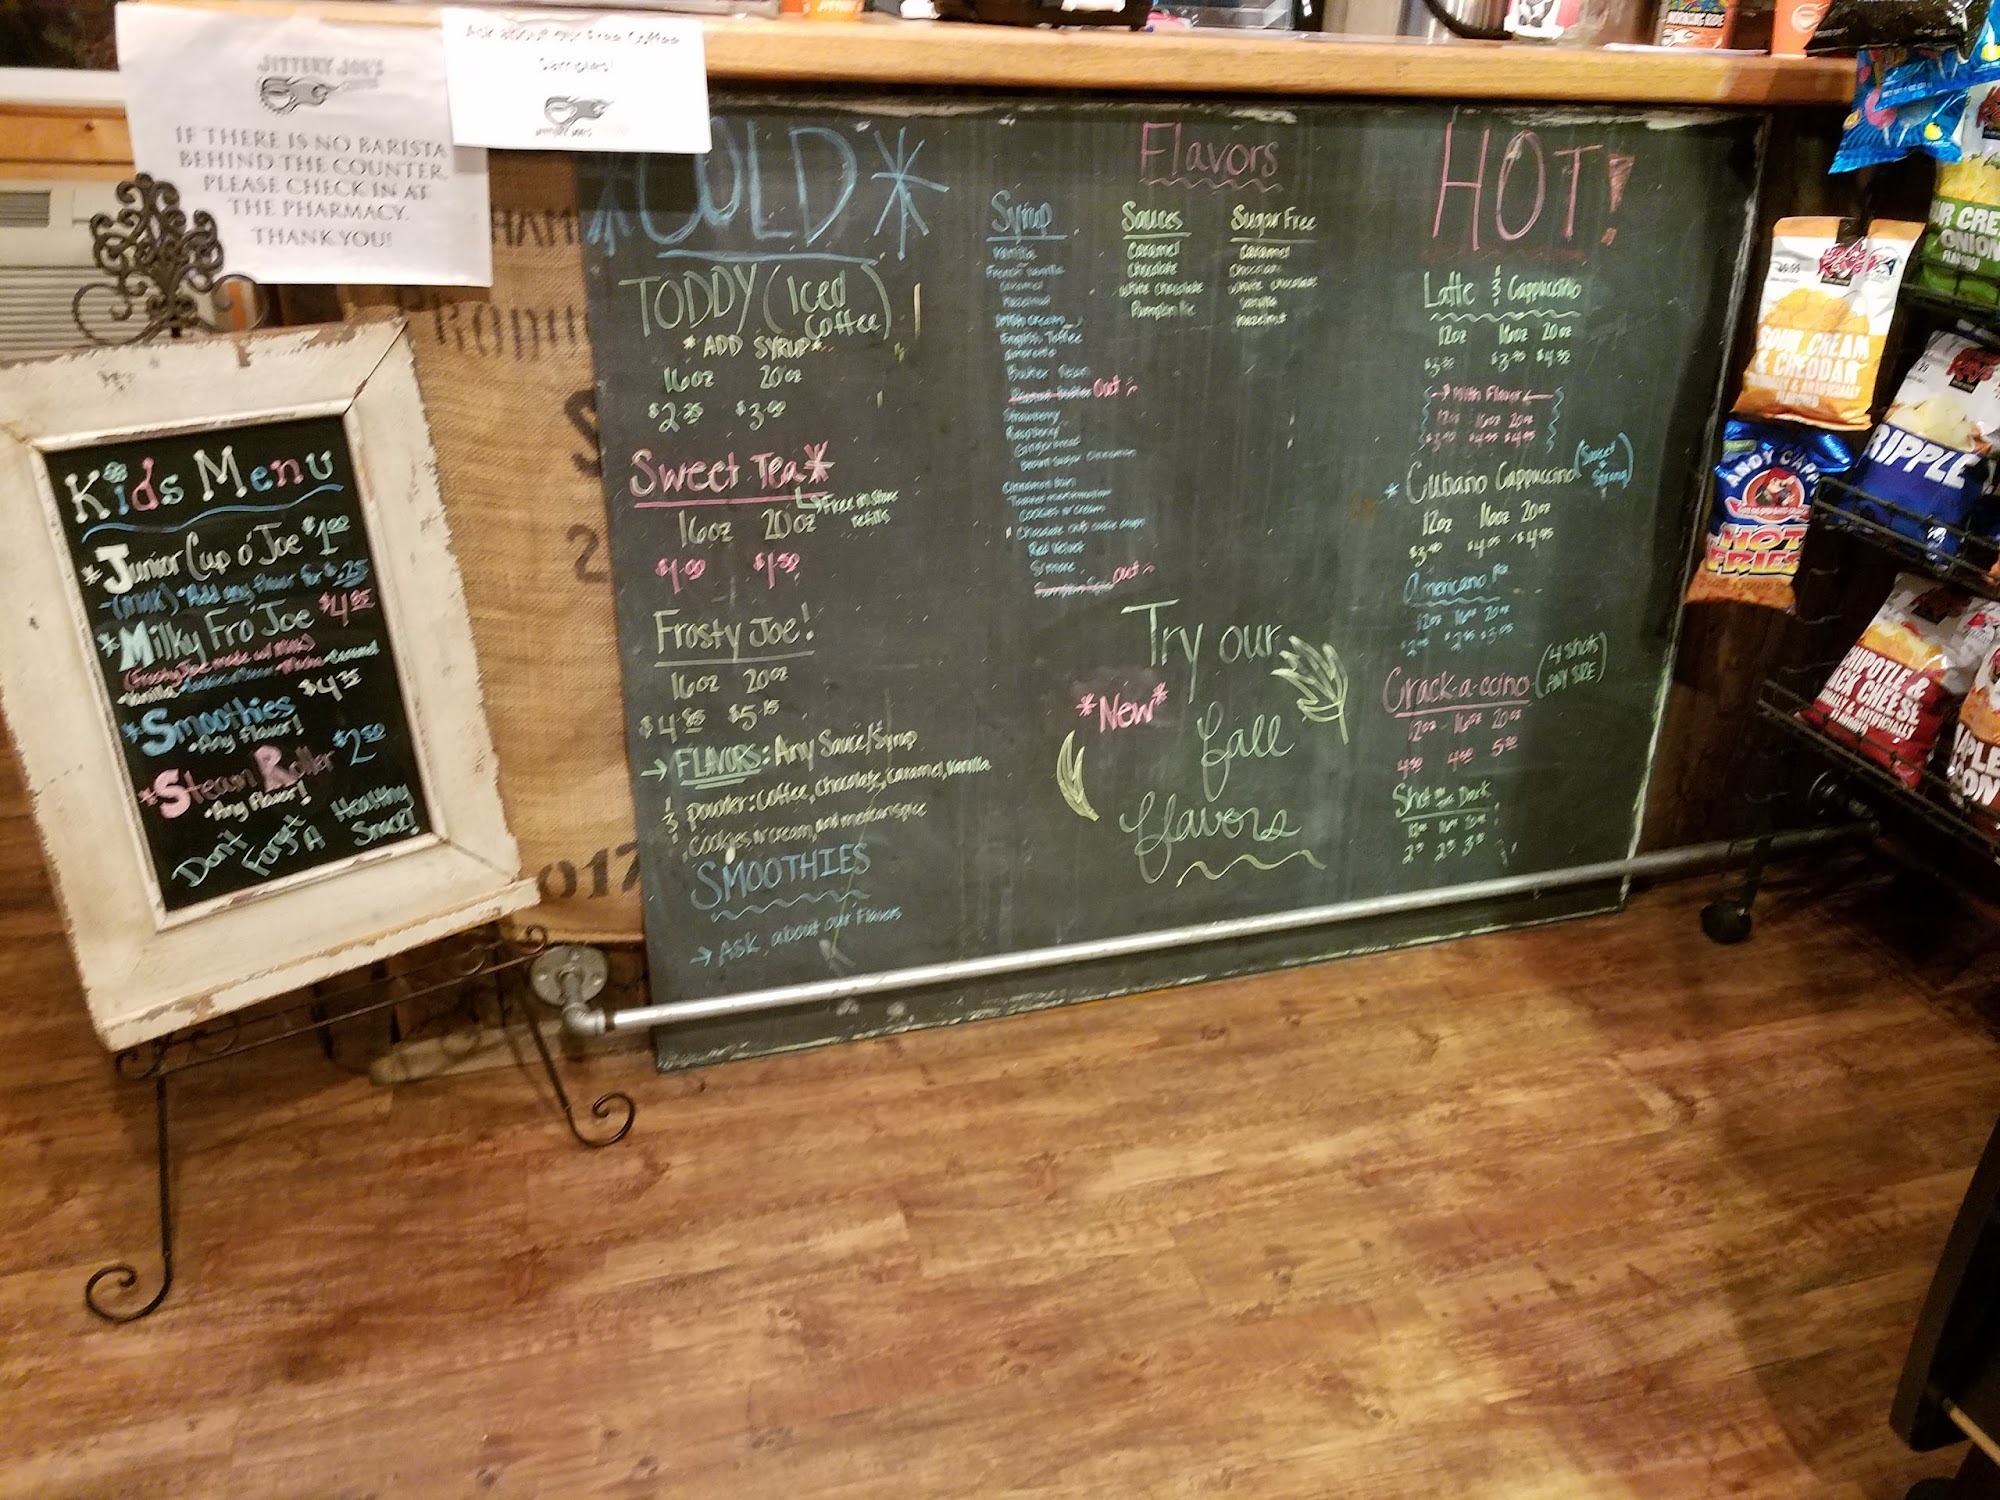 JITTERY JOE'S
COFFEE
IF THERE IS NO BARISTA
BEHIND THE COUNTER,
PLEASE CHECK IN AT
THE PHARMACY.
THANK YOU!
Ask about our Free Coffee
Samples!
Kids Menu
*Junior Cup o' Joe $1.00
-(Milk) *Add any flavor for $.25
*Milky Fro' Joe $4.85
(Frosty Joe made w/ Milk)
*Smoothies $4.35
*Any Flavor!
*Steam Roller $2.50
*Any Flavor!
Don't Forget A Healthy Snack!
*COLD*
TODDY (Iced Coffee)
*ADD SYRUP*
16oz 20oz
Sweet Tea*
Free in store refills
16oz 20oz
$1.00 $1.50
Frosty Joe!
16oz 20oz
$4.85 $5.15
→ FLAVORS: Any Sauce/Syrup
& powder: Coffee, Chocolate, Caramel, Vanilla
, Cookies n' cream, and mexican spice
SMOOTHIES
→ Ask about our Flavors
Flavors
Syrup
Vanilla
French Vanilla
Caramel
Hazelnut
Irish Cream
English Toffee
Amaretto
Butter Pecan
Peanut Butter Out
Strawberry
Raspberry
Gingerbread
Brown Sugar Cinnamon
Cinnamon Bun
Toasted Marshmallow
Cookies n' cream
Red Velvet
S'more
Pumpkin Spice Out
Sauces
Caramel
Chocolate
White Chocolate
Pumpkin Pie
Sugar Free
Caramel
Chocolate
White Chocolate
Vanilla
Hazelnut
Try our
*New*
fall
flavors
HOT!
Latte & Cappuccino
12oz 16oz 20oz
→ With Flavor ←
12oz 16oz 20oz
* Cubano Cappuccino
12oz 16oz 20oz
Americano
12oz 16oz 20oz
Crack-a-ccino (4 shots ANY SIZE)
12oz 16oz 20oz
Shot in the Dark
12oz 16oz 20oz
SOUR CREAM
& CHEDDAR
ANDY CAPP'S
HOT
FRIES
RIPPLE
ONION